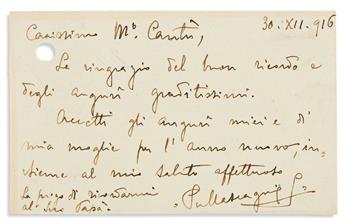 30.XII.916
Carissimo Mº Cantù,
La ringrazio del buon ricordo e
degli auguri graditissimi.
Accetti gli auguri miei e di
mia moglie per l'anno nuovo, in-
sieme al mio saluto affettuoso
La prego di ricordarmi
al Suo Papà.